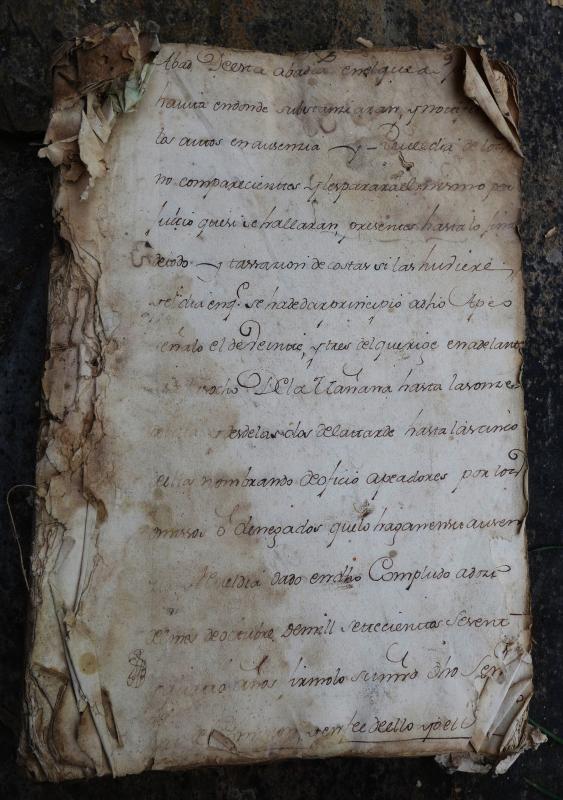 Abad Deesta abadia enel que a
havita endonde substanziaran, y
los autos enausenzia y Reveldia de los
no comparecientes y les parara el mismo per
juicio que si se hallaran presentes hasta lo fin
de todo y tassazion de costas si las huviere
se dia enq.e se ha de dar principio a dho Apeo
señalo el de Veinte, y tres del que rige en adelante
ocho De la Mañana hasta las onze
desde las dos de la tarde hasta las cinco
ella nombrando de oficio apeadores por los
omissos o denegados que lo hagan en su ausen
Reveldia dado en dho Compludo a doze
del mes de octubre de mill settecientos sesent
años firmolo su mrd dho Señ
en fee de ello yo el